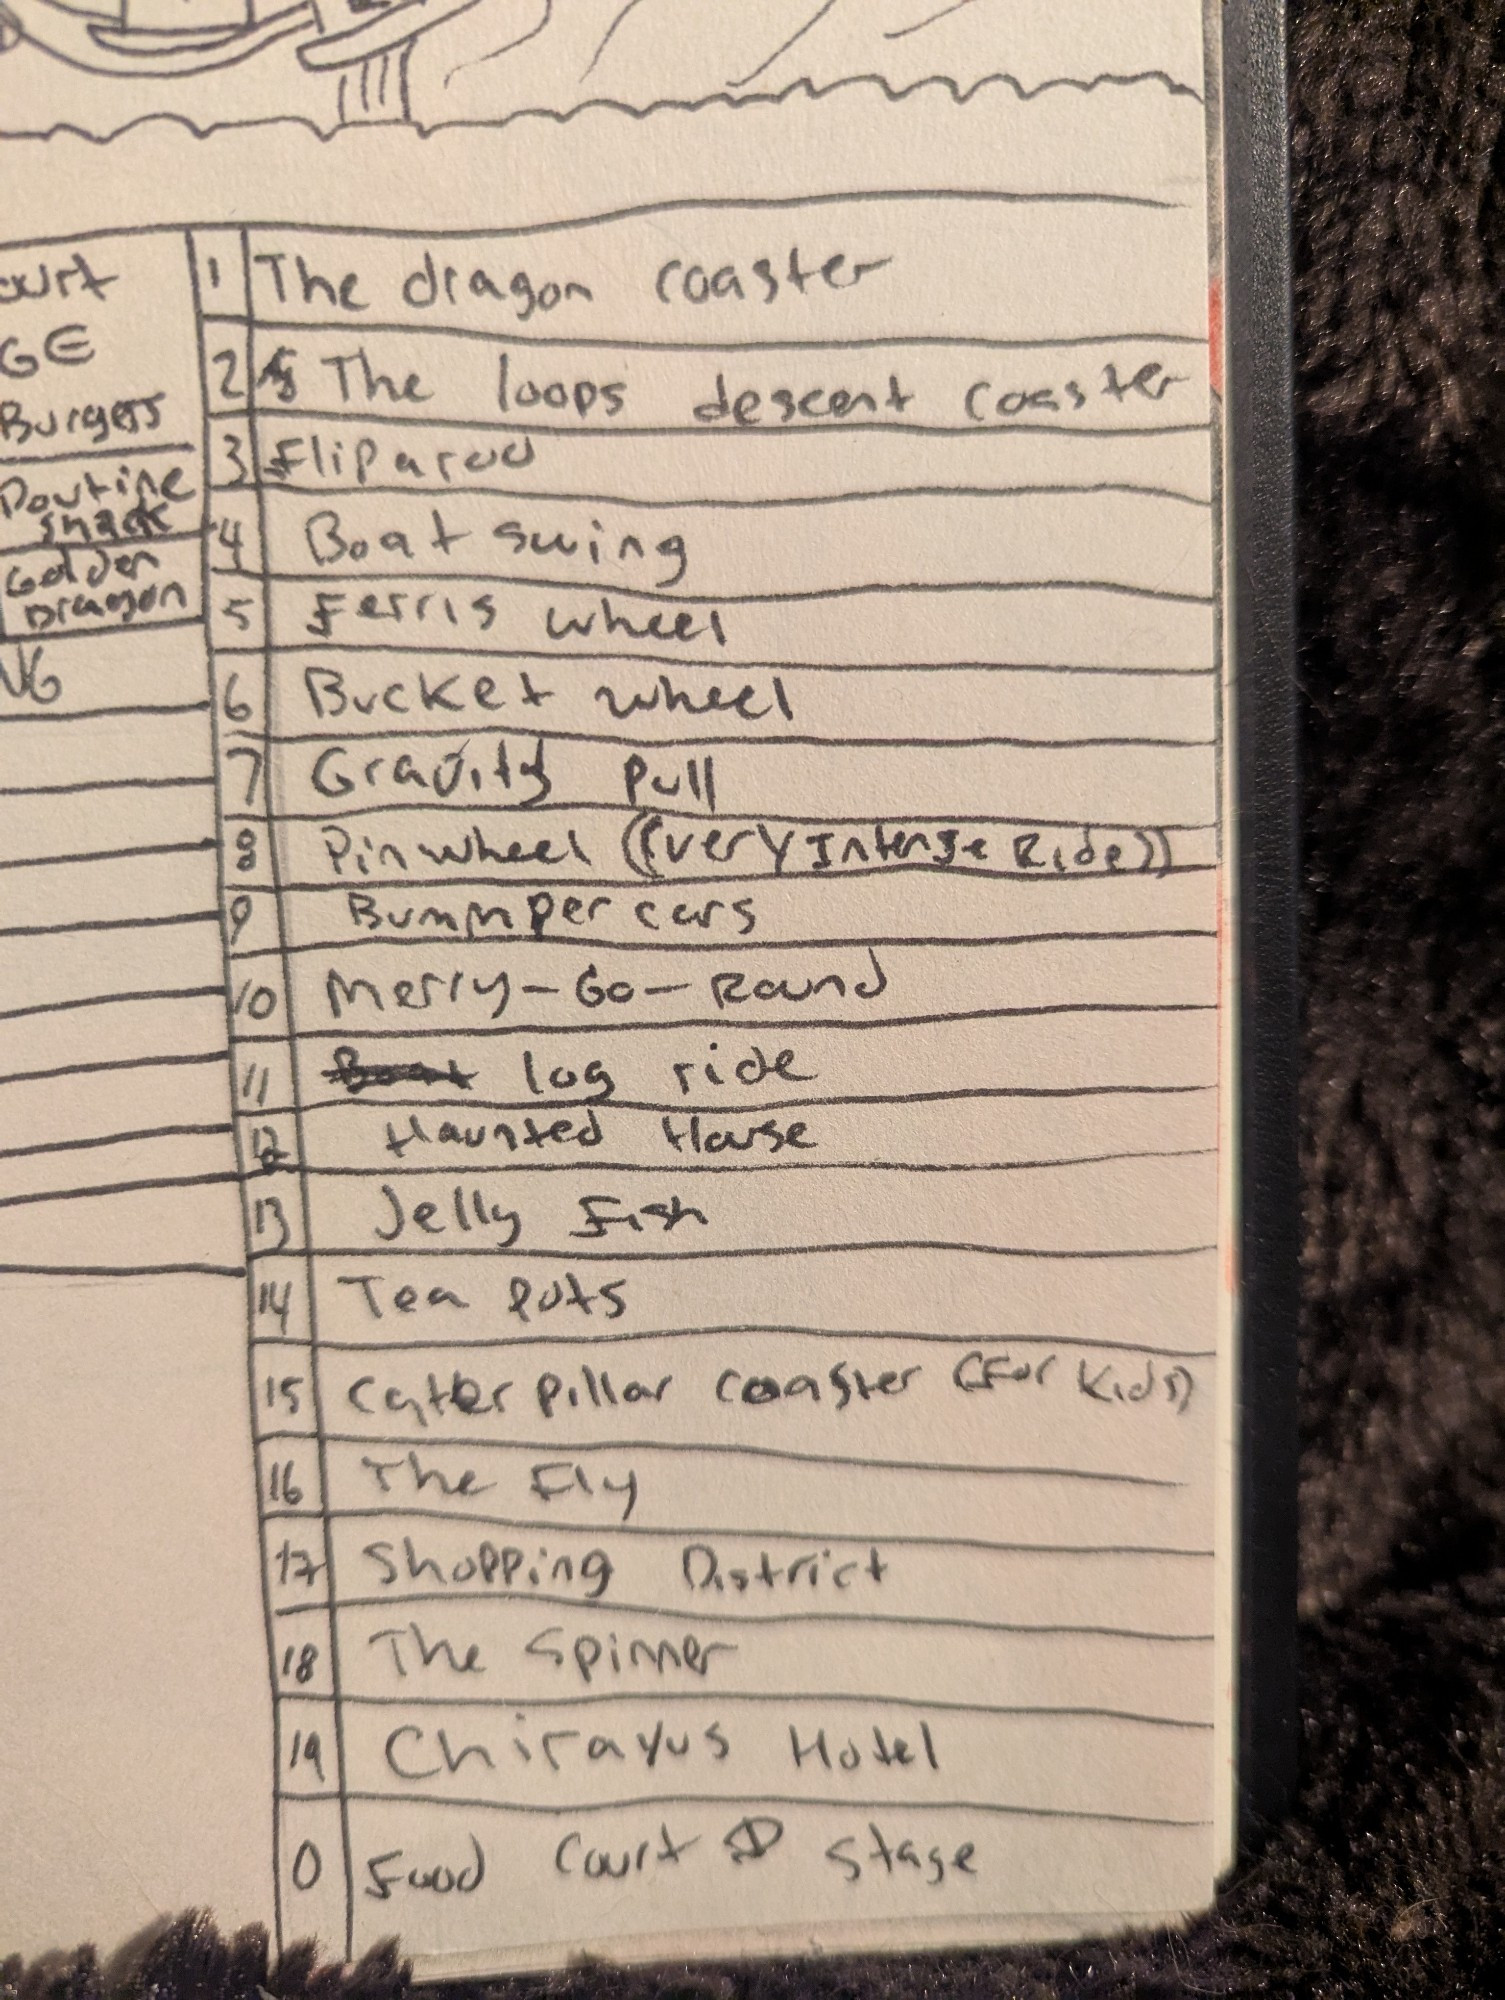 GE
Burgers
Poutine
snack
Golden
Dragon
1 The dragon coaster
2 The loops descent coaster
3 Fliparoo
4 Boat swing
5 Ferris wheel
6 Bucket wheel
7 Gravity Pull
8 Pinwheel ((Very Intense Ride))
9 Bummper cars
10 Merry-Go-Round
11 log ride
12 Haunted House
13 Jelly Fish
14 Tea pots
15 Caterpillar coaster (For Kids)
16 The Fly
17 Shopping District
18 The Spinner
19 Chirayus Hotel
0 Food Court & stage